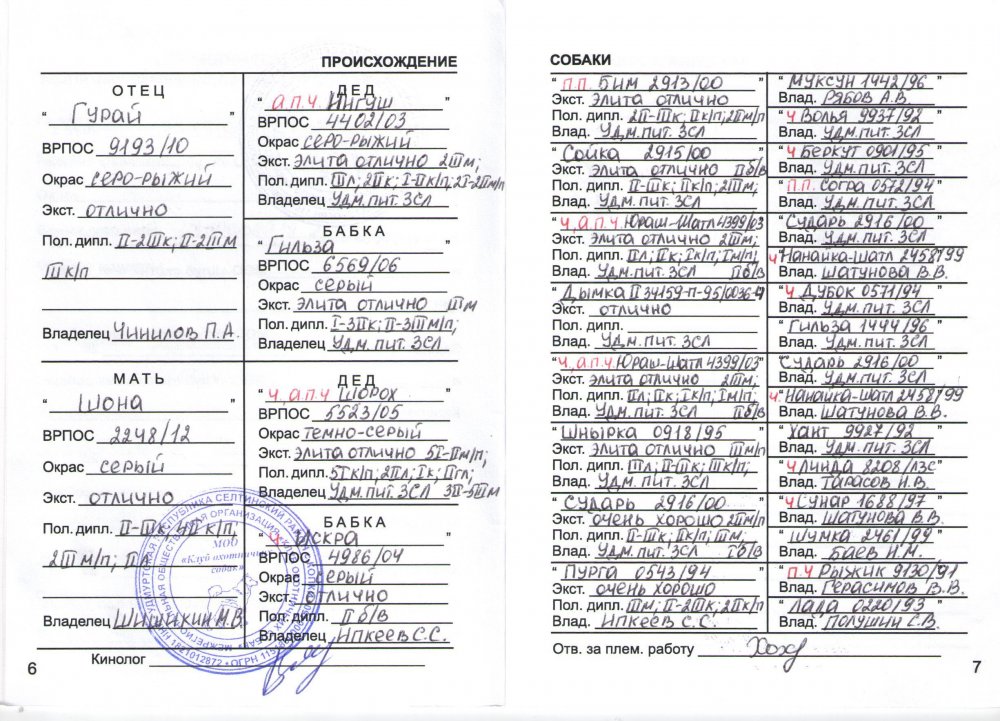 ПРОИСХОЖДЕНИЕ
ОТЕЦ
"Гурай"
ВРПОС 9193/10
Окрас серо-рыжий
Экст. отлично
Пол. дипл. II-2IIIк; II-2IIIм
IIIк/п
Владелец Чинилов П.А.
ДЕД
"А.П.Ч Ингуш"
ВРПОС 4402/03
Окрас серо-рыжий
Экст. элита отлично 2IIIм;
Пол. дипл. IIIл; 2IIк; I-IIк/п; 2I-2IIIм/п
Владелец Удм. пит. ЗСЛ
БАБКА
"Гильза"
ВРПОС 6569/06
Окрас серый
Экст. элита отлично IIIм
Пол. дипл. I-3IIк; II-3IIIм/п;
Владелец Удм. пит. ЗСЛ
МАТЬ
"Шона"
ВРПОС 2248/12
Окрас серый
Экст. отлично
Пол. дипл. II-IIIк; 4IIк/п;
2IIIм/п; IIл
Владелец Шишикин М.В.
ДЕД
"Ч, А.П.Ч Шорох"
ВРПОС 5523/05
Окрас темно-серый
Экст. элита отлично 5I-IIм;
Пол. дипл. 5Iк/п; 2IIл; Iк; IIгл;
Владелец Удм. пит. ЗСЛ 3II-5IIIм
БАБКА
"Ч Искра"
ВРПОС 4986/04
Окрас серый
Экст. отлично
Пол. дипл. II б/в
Владелец Ипкеев С.С.
МОО
«Клуб охотничьих
собак»
1821012872 • ОГРН
Кинолог
6
СОБАКИ
"П.П. Бим 2913/00"
Экст. элита отлично
Пол. дипл. 2II-IIIк; IIк/п; 2IIм/п
Влад. Удм. пит. ЗСЛ
"Сойка 2915/00"
Экст. элита отлично II б/в
Пол. дипл. II-IIIк; IIк/п; 2IIIм;
Влад. Удм. пит. ЗСЛ
"Ч, А.П.Ч Юраш-Шатл 4399/03
Экст. элита отлично 2IIIм;
Пол. дипл. IIл; IIк; Iк/п; Iм/п;
Влад. Удм. пит. ЗСЛ II б/в
"Дымка II 34159-П-95/0036-94
Экст. отлично
Пол. дипл.
Влад. Удм. пит. ЗСЛ
"Ч, А.П.Ч Юраш-Шатл 4399/03"
Экст. элита отлично 2IIIм;
Пол. дипл. IIл; IIк; Iк/п; Iм/п;
Влад. Удм. пит. ЗСЛ II б/в
"Шнырка 0918/95"
Экст. элита отлично IIIм
Пол. дипл. IIIл; II-IIIк; IIIк/п;
Влад. Удм. пит. ЗСЛ
"Сударь 2916/00"
Экст. очень хорошо 2IIIм/п
Пол. дипл. II-IIIк; IIк/п; IIIм;
Влад. Удм. пит. ЗСЛ I б/в
"Пурга 0543/94"
Экст. очень хорошо
Пол. дипл. IIIм; II-2IIIк; 2IIк/п
Влад. Ипкеев С.С.
"Муксун 1442/96"
Влад. Рябов А.В.
"Ч Волья 9937/92"
Влад. Удм. пит. ЗСЛ
"Ч Беркут 0901/95"
Влад. Удм. пит. ЗСЛ
"П.П. Согра 0572/94"
Влад. Удм. пит. ЗСЛ
"Сударь 2916/00"
Влад. Удм. пит. ЗСЛ
"Ч Нанайка-Шатл 2458/99
Влад. Шатунова В.В.
"Ч Дубок 0571/94"
Влад. Удм. пит. ЗСЛ
"Гильза 1444/96"
Влад. Удм. пит. ЗСЛ
"Сударь 2916/00"
Влад. Удм. пит. ЗСЛ
"Ч Нанайка-Шатл 2458/99
Влад. Шатунова В.В.
"Хант 9927/92"
Влад. Удм. пит. ЗСЛ
"Ч Линда 8208/лзс"
Влад. Тарасов Н.В.
"Ч Сунар 1688/97"
Влад. Шатунова В.В.
"Шумка 2461/99"
Влад. Баев Н.М.
"П.Ч Рыжик 9130/91
Влад. Герасимов В.В.
"Лада 0220/93"
Влад. Полушин С.В.
Отв. за плем. работу
7